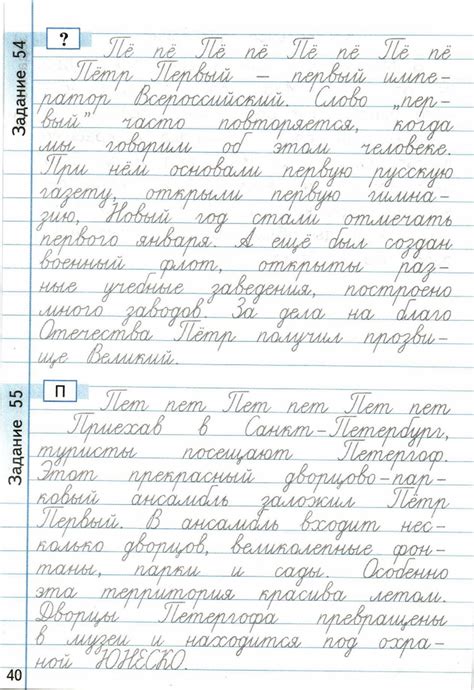 Задание 54
?
Пё пё Пё пё Пё пё Пё пё
Пётр Первый – первый импе-
ратор Всероссийский. Слово „пер-
вый” часто повторяется, когда
мы говорим об этом человеке.
При нём основали первую русскую
газету, открыли первую гимна-
зию, Новый год стали отмечать
первого января. А ещё был создан
военный флот, открыты раз-
ные учебные заведения, построено
много заводов. За дела на благо
Отечества Пётр получил прозви-
ще Великий.
Задание 55
П
Пет пет Пет пет Пет пет
Приехав в Санкт-Петербург,
туристы посещают Петергоф.
Этот прекрасный дворцово-пар-
ковый ансамбль заложил Пётр
Первый. В ансамбль входит нес-
колько дворцов, великолепные фон-
таны, парки и сады. Особенно
эта территория красива летом.
Дворцы Петергофа превращены
в музеи и находится под охра-
ной ЮНЕСКО.
40